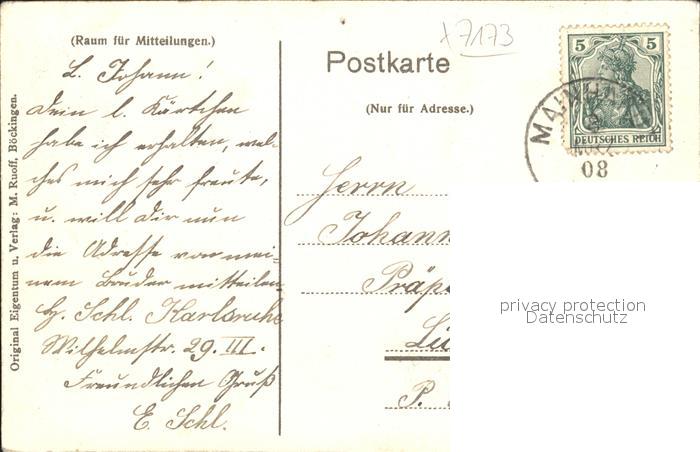 x7173
(Raum für Mitteilungen.)
Postkarte
(Nur für Adresse.)
5 5
DEUTSCHES REICH
MAINHA
08
L. Johann!
Dein l. Kärtchen
habe ich erhalten, wel-
ches mich sehr freute,
u. will Dir nun
die Adresse von mei-
nem Bruder mitteilen
Schl. Karlsruhe
Wilhelmstr. 29 III.
Freundlichen Gruß
E. Schl.
Original Eigentum u. Verlag: M. Ruoff, Böckingen.
Herrn
Johann
Präp
P.
privacy protection
Datenschutz